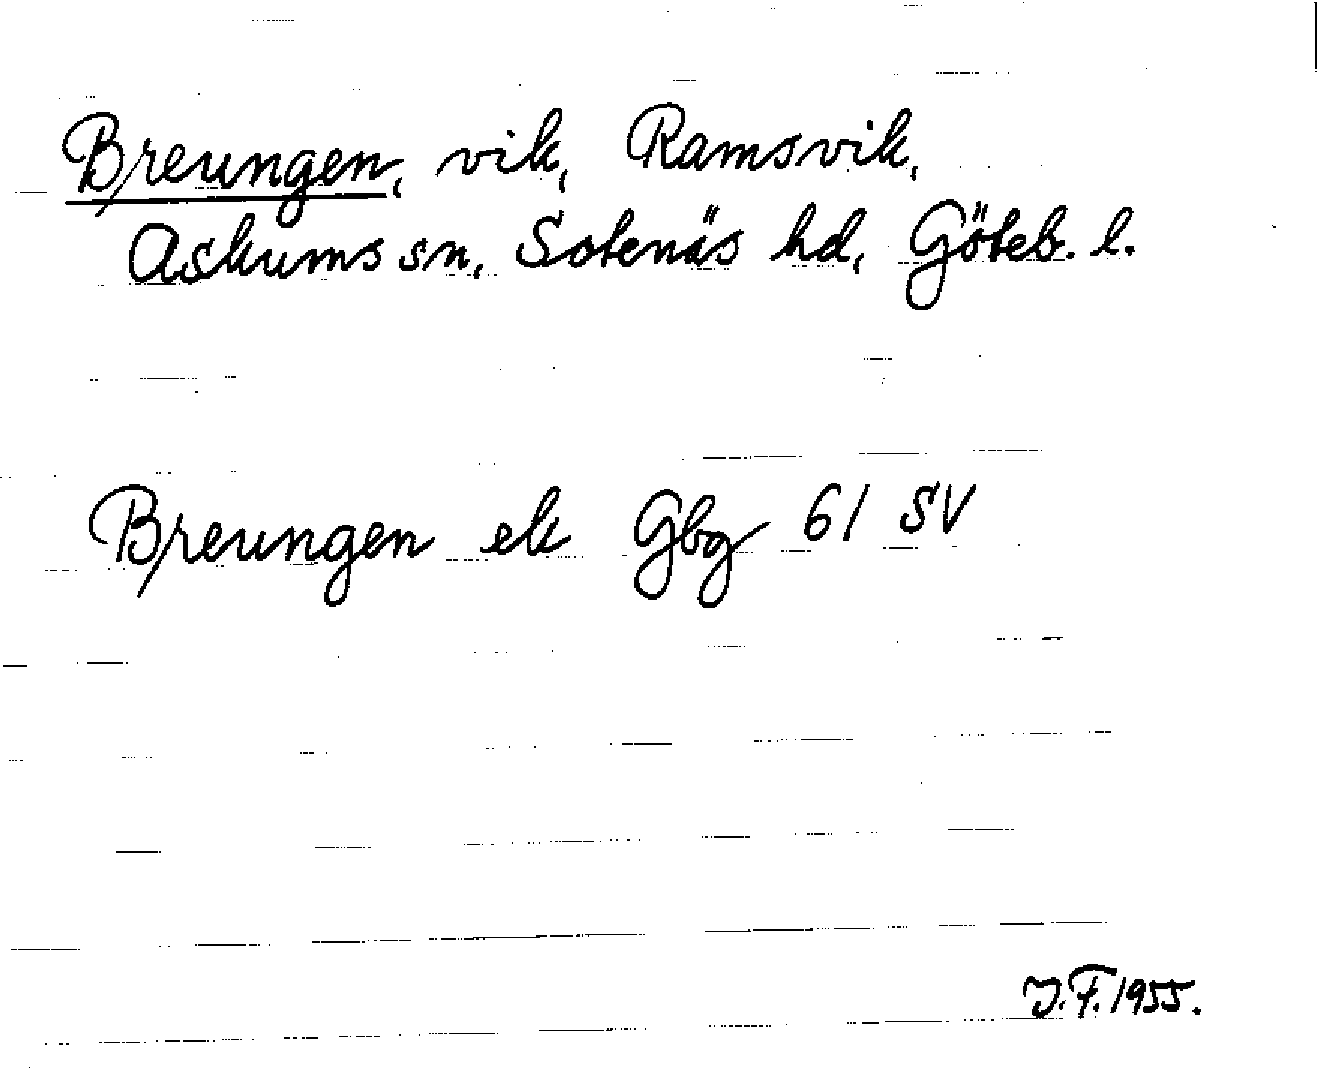 Breungen, vik, Ramsvik,
Askums sn, Sotenäs hd, Göteb. l.
Breungen ek Gbg 61 SV
J.F. 1955.